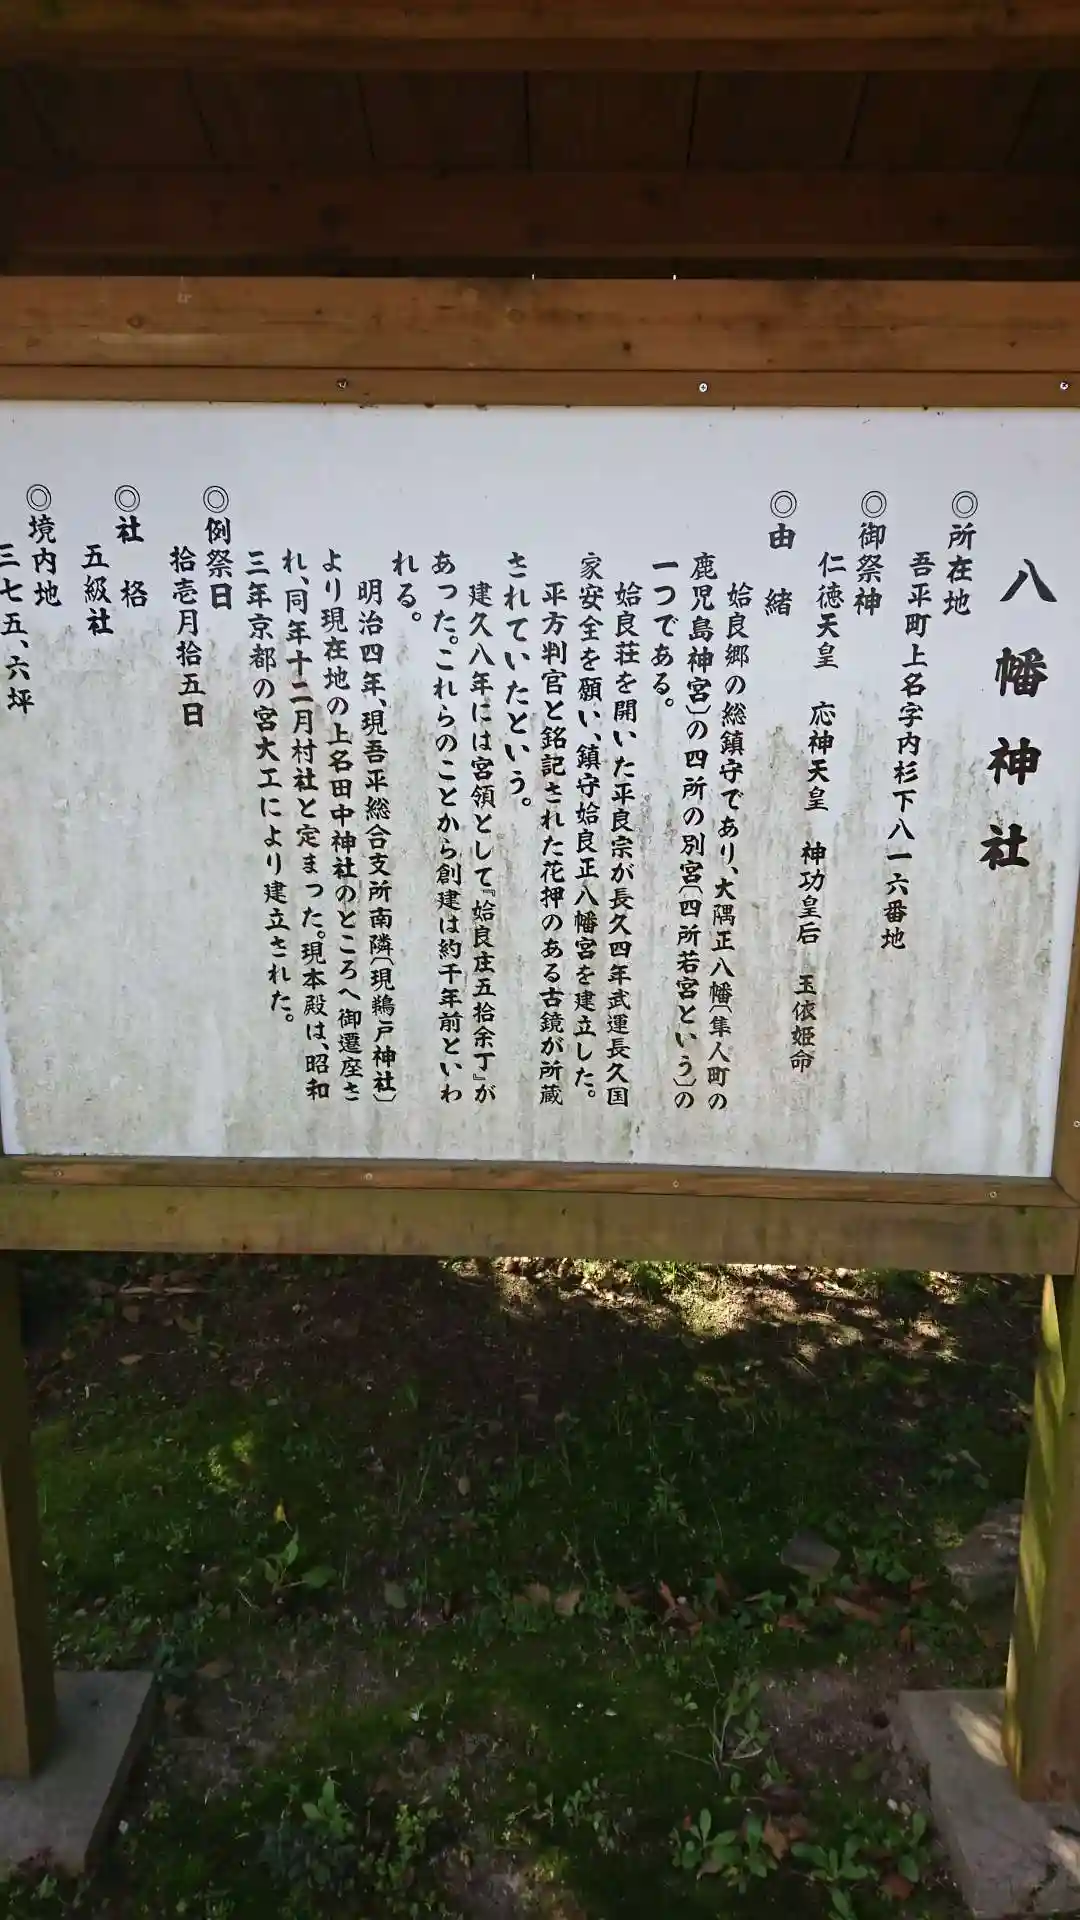 八幡神社
◎所在地
吾平町上名字内杉下八一六番地
◎御祭神
仁徳天皇 応神天皇 神功皇后 玉依姫命
◎由緒
姶良郷の総鎮守であり、大隅正八幡(隼人町の
鹿児島神宮)の四所の別宮(四所若宮という)の
一つである。
姶良荘を開いた平良宗が長久四年武運長久国
家安全を願い、鎮守姶良正八幡宮を建立した。
平方判官と銘記された花押のある古鏡が所蔵
されていたという。
建久八年には宮領として『姶良庄五拾余丁』が
あった。これらのことから創建は約千年前といわ
れる。
明治四年、現吾平総合支所南隣(現鵜戸神社)
より現在地の上名田中神社のところへ御遷座さ
れ、同年十二月村社と定まった。現本殿は、昭和
三年京都の宮大工により建立された。
◎例祭日
拾壱月拾五日
◎社格
五級社
◎境内地
三七五、六坪